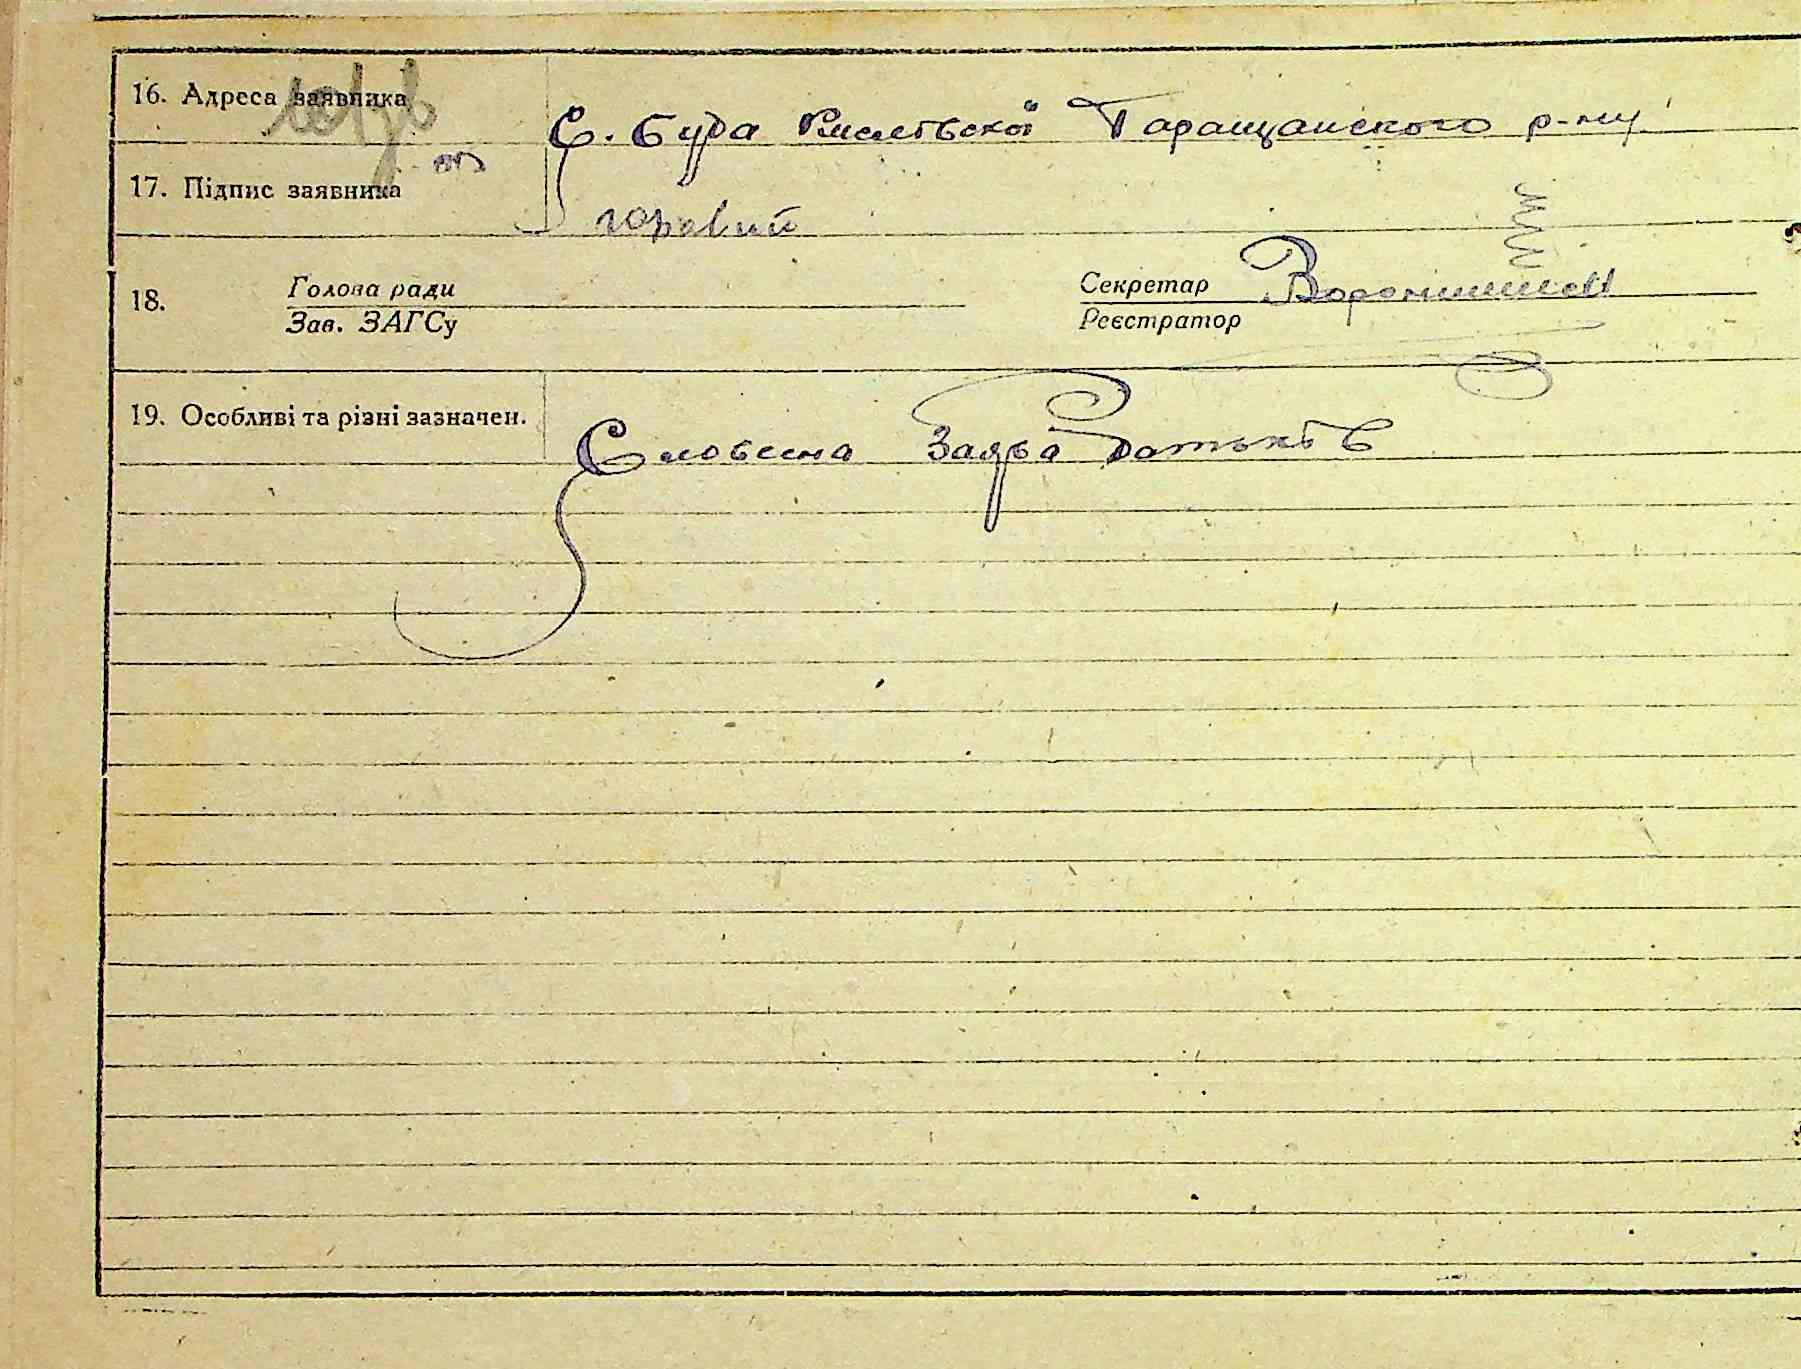 16. Адреса заявника
С. Буда Таращанского р-ну
17. Підпис заявника
18.
Голова ради
Зав. ЗАГСу
Секретар
Реєстратор
19. Особливі та різні зазначен.
Словесна Заява батьків